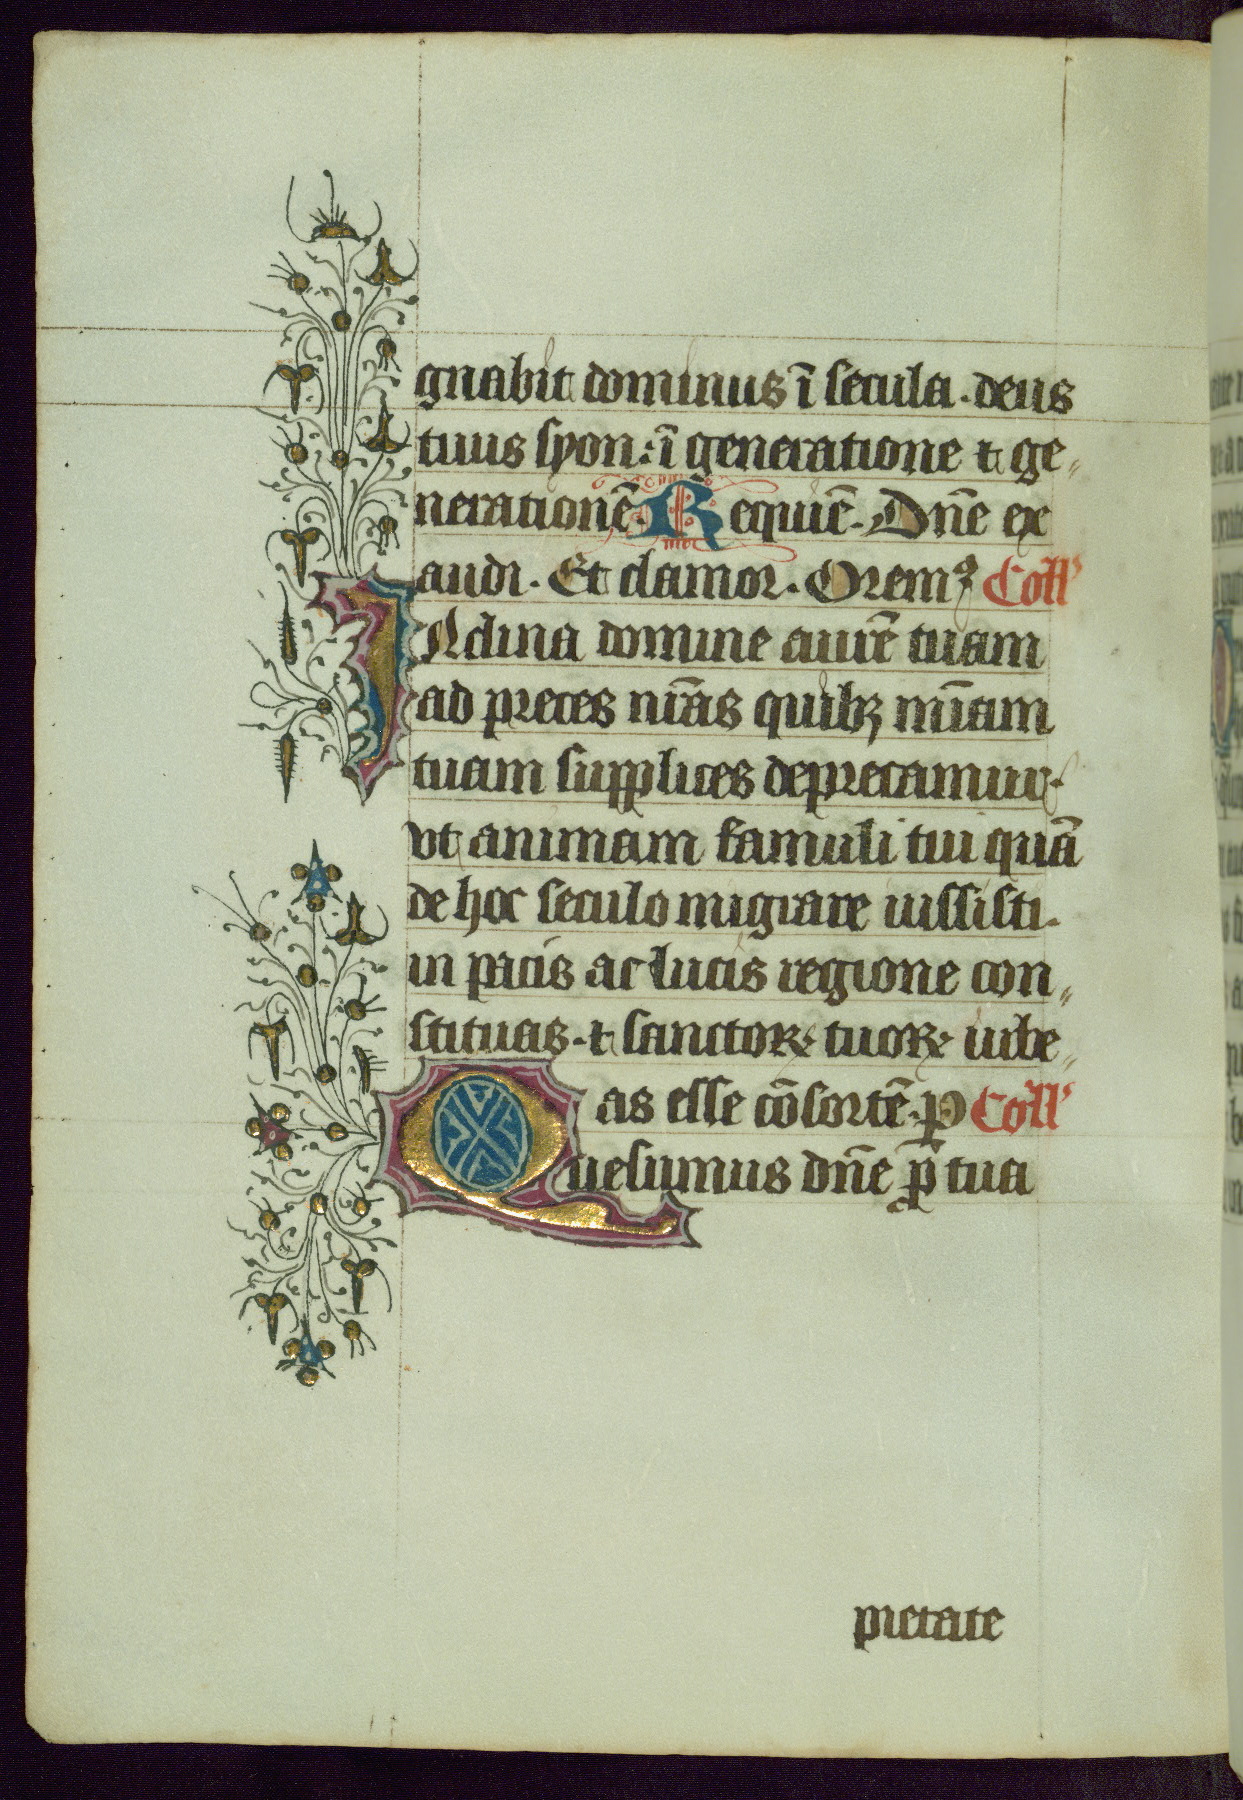 gnabit dominus ī secula . deus
tuus syon : ī generatione et ge„
nerationē . Requiē . Dn̄e ex
audi . Et clamor . Oremꝰ Coll'
INclina domine aurē tuam
ad preces nr̄as quibꝫ mīam
tuam supplices deprecamur .
vt animam famuli tui quā
de hoc seculo migrare iussisti .
in pacis ac lucis regione con„
stituas . et sanctoꝝ tuoꝝ iube„
as esse cōsortē . p Coll'
Quesumus dn̄e p̄ tua
pietate